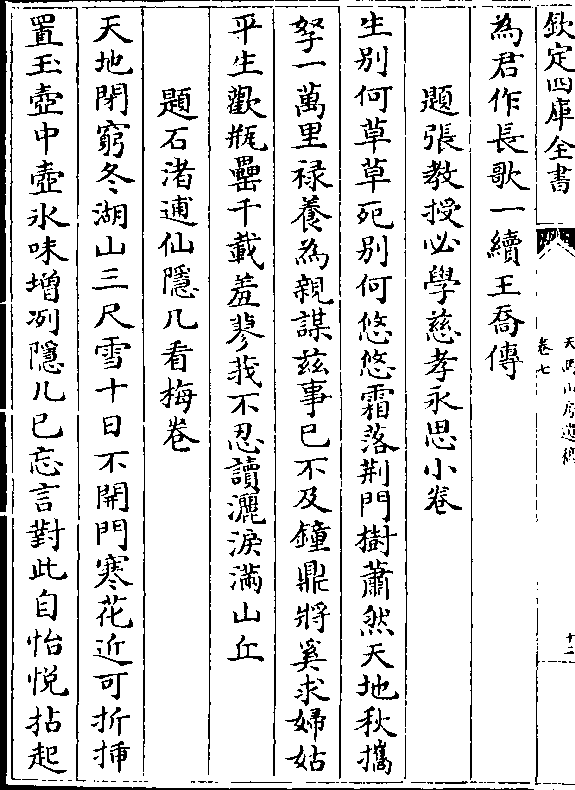 欽定四庫全書
天馬山房遺稿
卷七
十二
為君作長歌一續王喬傳
題張教授必學慈孝永思小卷
生別何草草死別何悠悠霜落荆門樹蕭然天地秋攜
孥一萬里禄養為親謀兹事已不及鐘鼎將奚求婦姑
平生歡瓶罍千載羞蓼莪不忍讀灑淚滿山丘
題石渚逋仙隱几看梅卷
天地閉窮冬湖山三尺雪十日不開門寒花近可折揷
置玉壺中壺氷味增冽隱几已忘言對此自怡悦拈起